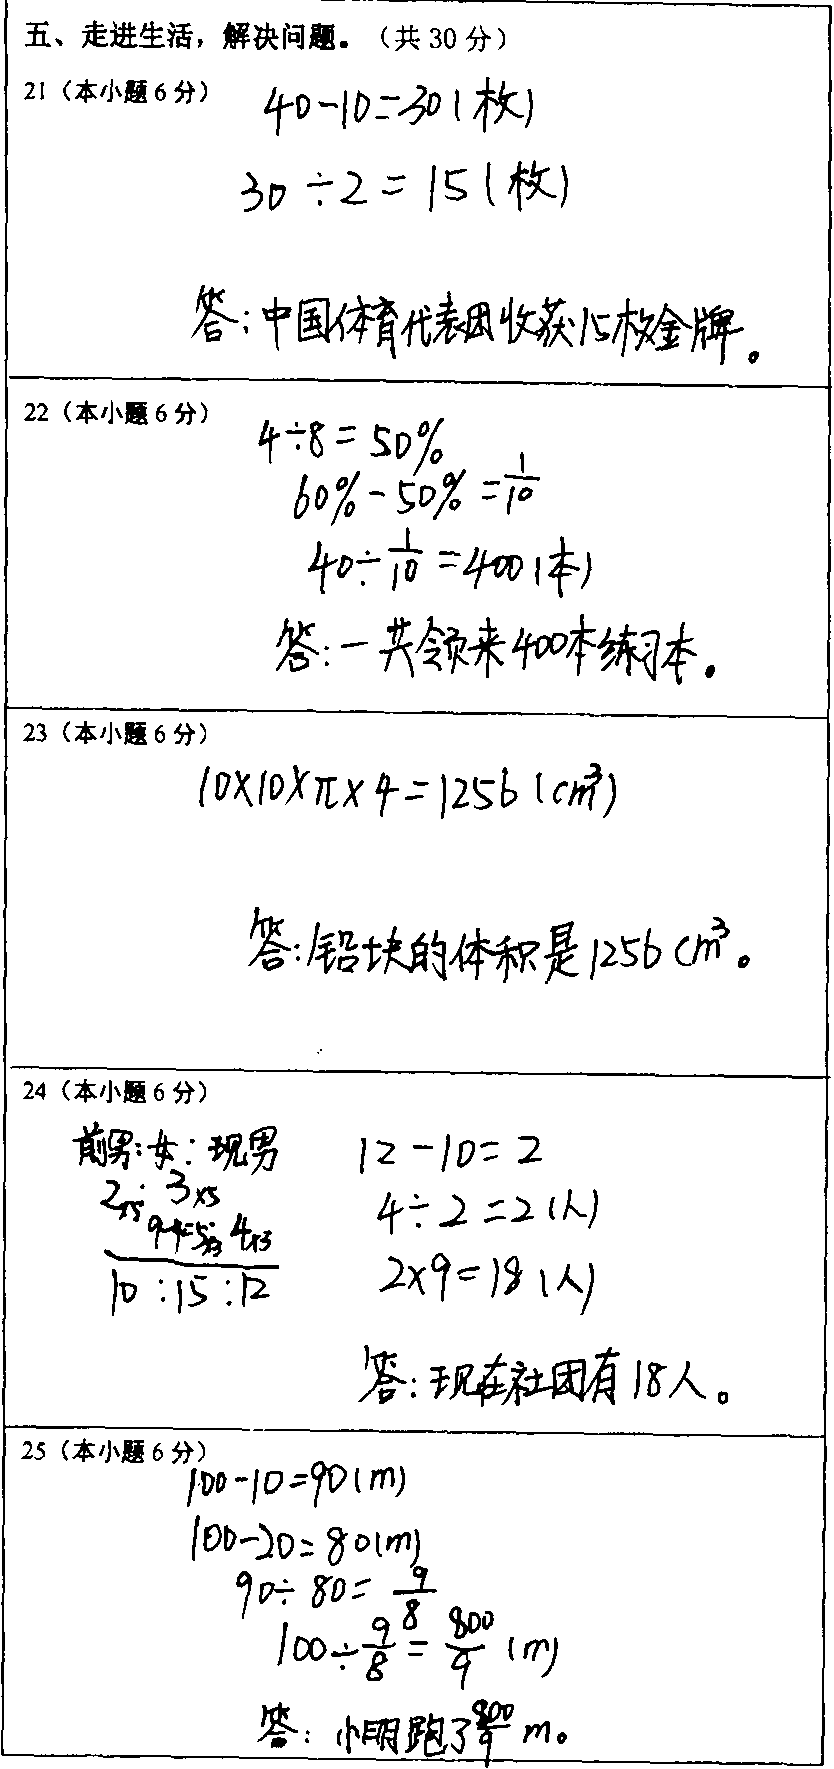 五、走进生活，解决问题。（共 30 分）
21（本小题 6 分）
40-10=30(枚)
30÷2=15(枚)
答:中国体育代表团收获15枚金牌。
22（本小题 6 分）
4÷8=50%
60%-50%=1/10
40÷1/10=400(本)
答:一共领来400本练习本。
23（本小题 6 分）
10×10×π×4=1256(cm³)
答:铅块的体积是1256cm³。
24（本小题 6 分）
前男:女:现男
2×5:3×5
9-4=5×3:4×3
10:15:12
12-10=2
4÷2=2(人)
2×9=18(人)
答:现在社团有18人。
25（本小题 6 分）
100-10=90(m)
100-20=80(m)
90÷80=9/8
100÷9/8=800/9(m)
答:小明跑了800/9m。